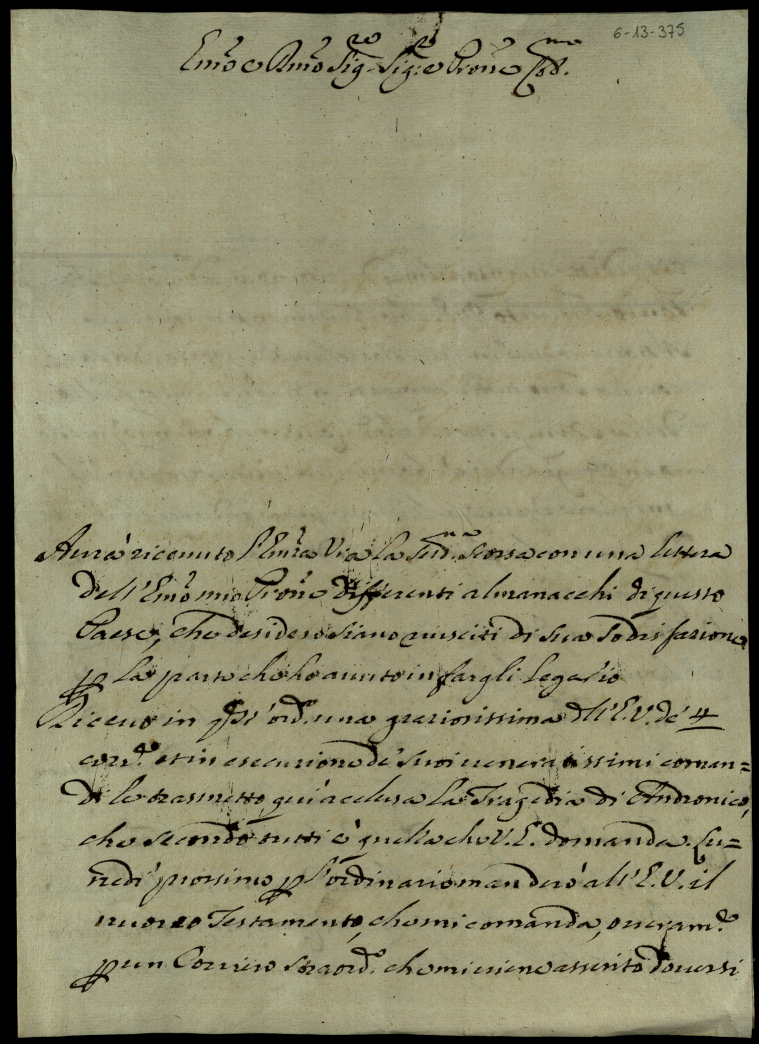 6-13-375
Em̃o e Rm̃o Sig.re Sig.re e Prone Col.mo
Avrà ricevuto l'Em̃za V.ra la Sett.na scorsa con una lettera
dell'Em̃o mio Prone differenti almanacchi di questo
Paese, che desidero siano riusciti di sua sodisfazione
p la parte che ho avuto in fargli legar'io
Ricevo in qst' ord. una graziosissima dell'E.V. de' 4
corr.e et in esecuzione de' suoi veneratissimi coman=
di le trasmetto quì acclusa la Tragedia di Andronico,
che secondo tutti è quella che V.E. domanda. Lu=
nedì prossimo p l'ordinario manderò all'E.V. il
nuovo Testamento, che mi comanda, overam.e
p un Corriero straord.o che mi viene asserito doversi